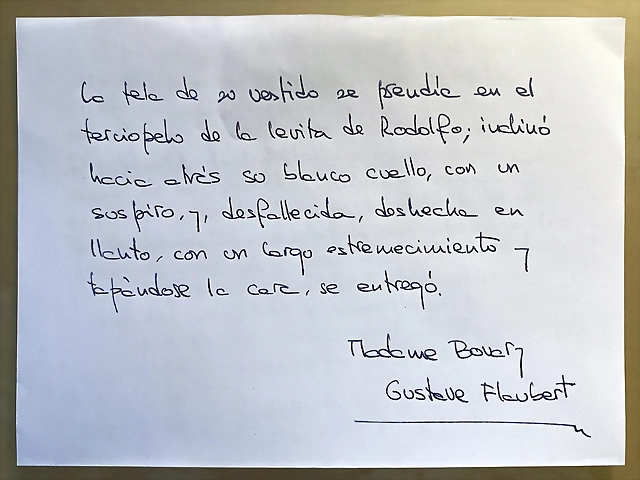 La tela de su vestido se prendía en el
terciopelo de la levita de Rodolfo; inclinó
hacia atrás su blanco cuello, con un
suspiro, y, desfallecida, deshecha en
llanto, con un largo estremecimiento y
tapándose la cara, se entregó.
Madame Bovary
Gustave Flaubert